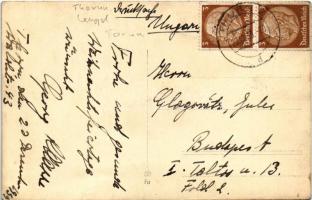 Thorn
Lengyel
Torun
Drucksache
Ungarn
3 Deutsches Reich 3
Deutsches Reich
Frohe und gesunde
Weihnachtsfeiertage
wünscht
Georg
Thorn, den 20 Dezember
Herrn
Glogovátz, Jules
Budapest
I. Toltes u. 13.
Föld 2.